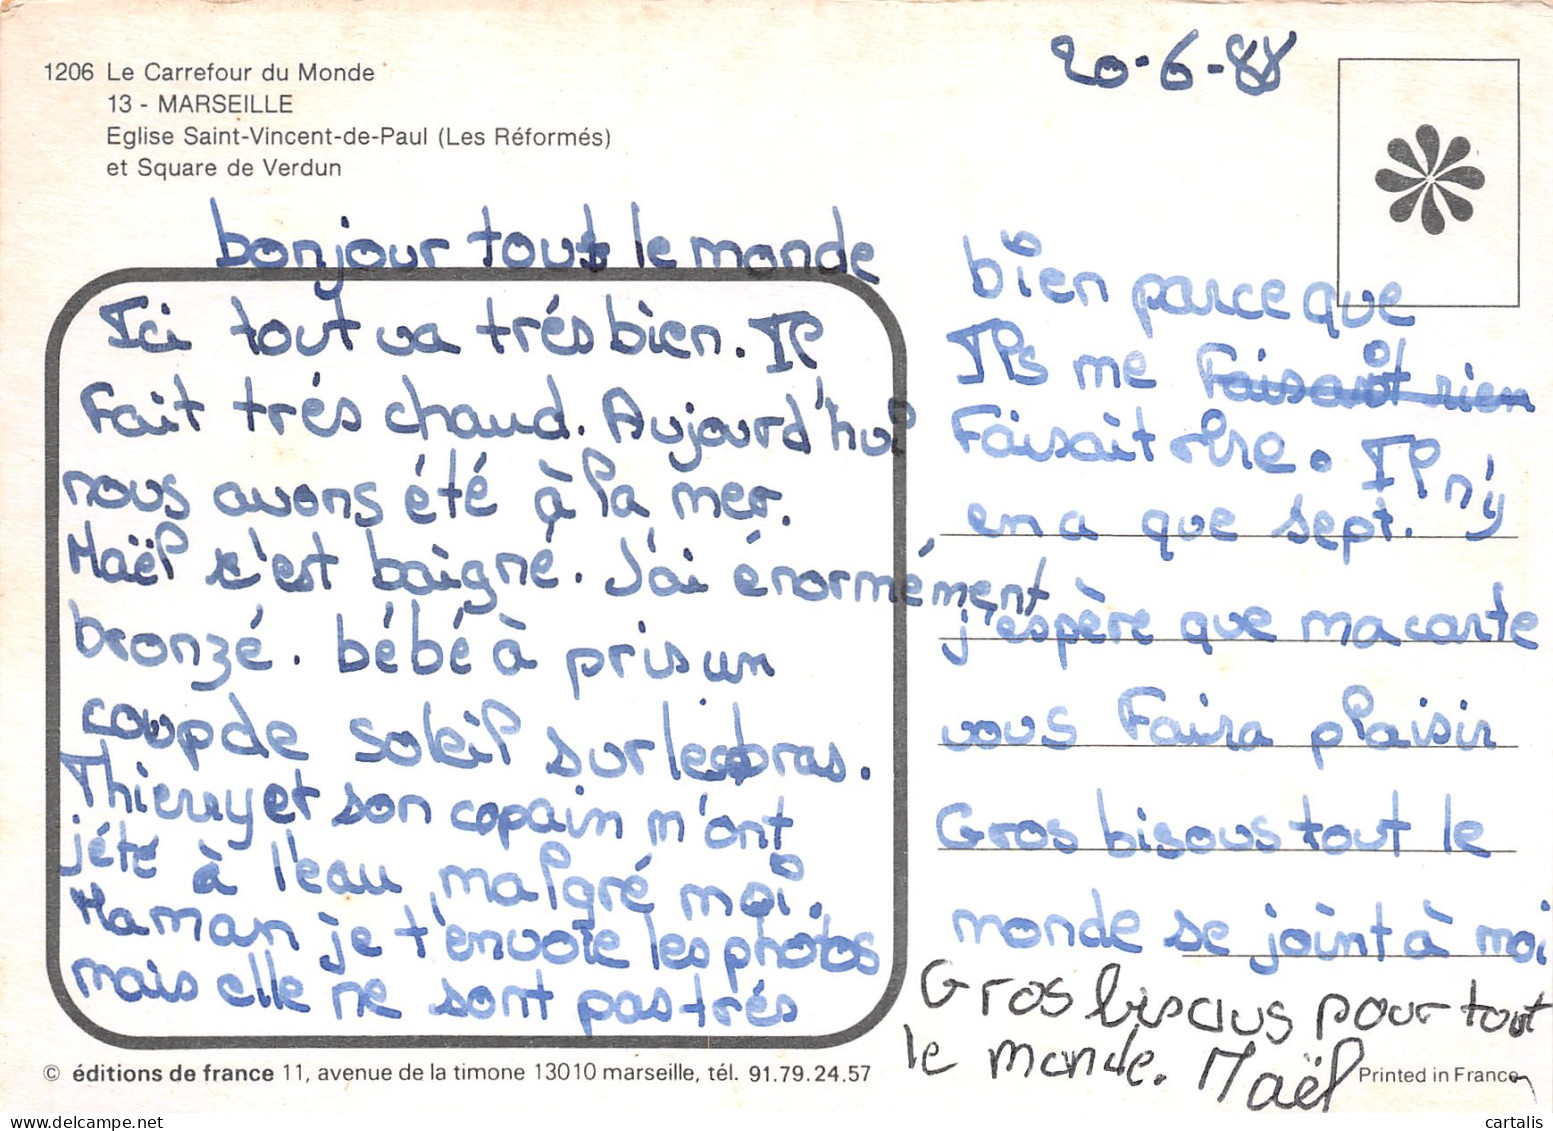 1206 Le Carrefour du Monde
13 - MARSEILLE
Eglise Saint-Vincent-de-Paul (Les Réformés)
et Square de Verdun
20-6-88
bonjour tout le monde
Ici tout va trés bien. Il
Fait trés chaud. Aujourd'hui
nous avons été à la mer.
Maël s'est baigné. J'ai énormément
bronzé. bébé à pris un
coup de soleil sur les bras.
Thierry et son copain m'ont
jété à l'eau, malgré moi.
Maman je t'envoie les photos
mais elle ne sont pas trés
bien parce que
Ils me Faisait rien
Faisait rire. Il n'y
en a que sept.
j'espère que ma carte
vous Faira plaisir
Gros bisous tout le
monde se joint à moi
Gros bisous pour tout
le monde. Maël
© éditions de france 11, avenue de la timone 13010 marseille, tél. 91.79.24.57
Printed in France
cartalis